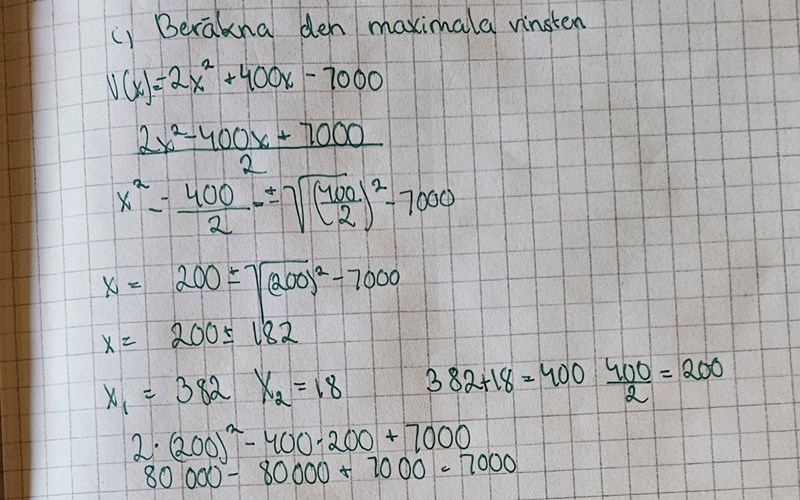 c) Beräkna den maximala vinsten
V(x)=-2x² +400x - 7000
2x²-400x + 7000
2
x² - - 400/2 = ± √(400/2)² - 7000
x = 200 ± √(200)² - 7000
x = 200 ± 182
x₁ = 382 x₂ = 18 382+18 = 400 400/2 = 200
2·(200)² - 400·200 + 7000
80 000 - 80000 + 7000 = 7000